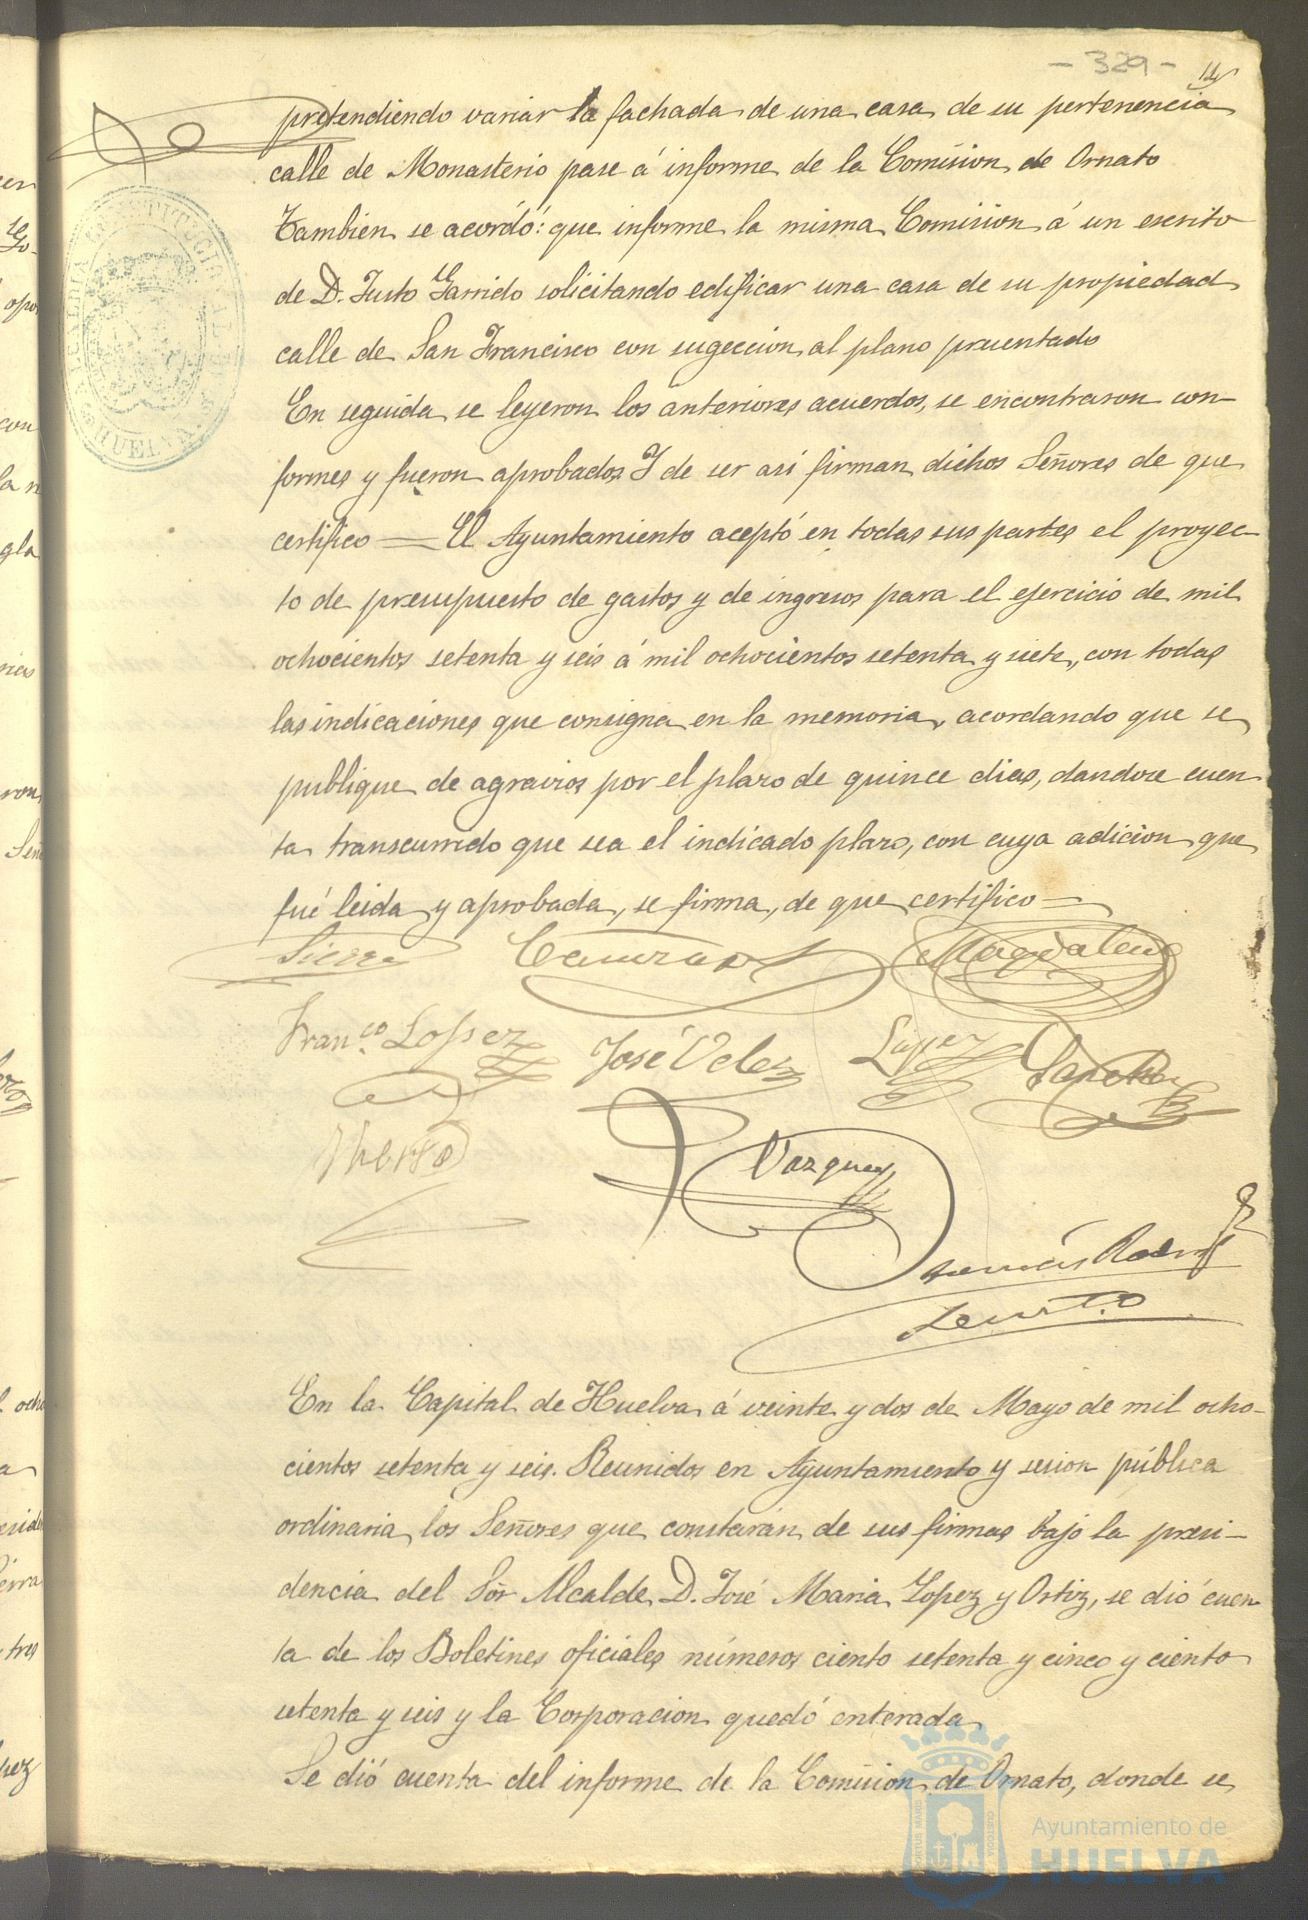 - 329 -
pretendiendo variar la fachada de una casa de su pertenencia
calle de Monasterio pase á informe de la Comision de Ornato
Tambien se acordó: que informe la misma Comision á un escrito
de D. Justo Garrido solicitando edificar una casa de su propiedad
calle de San Francisco con sugeccion al plano presentado
En seguida se leyeron los anteriores acuerdos, se encontraron con-
formes y fueron aprobados. Y de ser asi firman dichos Señores de que
certifico = El Ayuntamiento aceptó en todas sus partes el proyec-
to de presupuesto de gastos y de ingresos para el ejercicio de mil
ochocientos setenta y seis á mil ochocientos setenta y siete, con todas
las indicaciones que consigna en la memoria, acordando que se
publique de agravios por el plazo de quince dias, dandose cuen
ta transcurrido que sea el indicado plazo, con cuya adicion que
fué leida y aprobada, se firma, de que certifico =
Sierra Magdalena
Fran.co Lopez José Velez Lopez
Vazquez
En la Capital de Huelva á veinte y dos de Mayo de mil ocho-
cientos setenta y seis. Reunidos en Ayuntamiento y sesion pública
ordinaria los Señores que constarán de sus firmas bajo la presi-
dencia del Sor Alcalde D. José Maria Lopez y Ortiz, se dió cuen
ta de los Boletines oficiales números ciento setenta y cinco y ciento
setenta y seis y la Corporacion quedó enterada
Se dió cuenta del informe de la Comision de Ornato, donde se
Ayuntamiento de
HUELVA